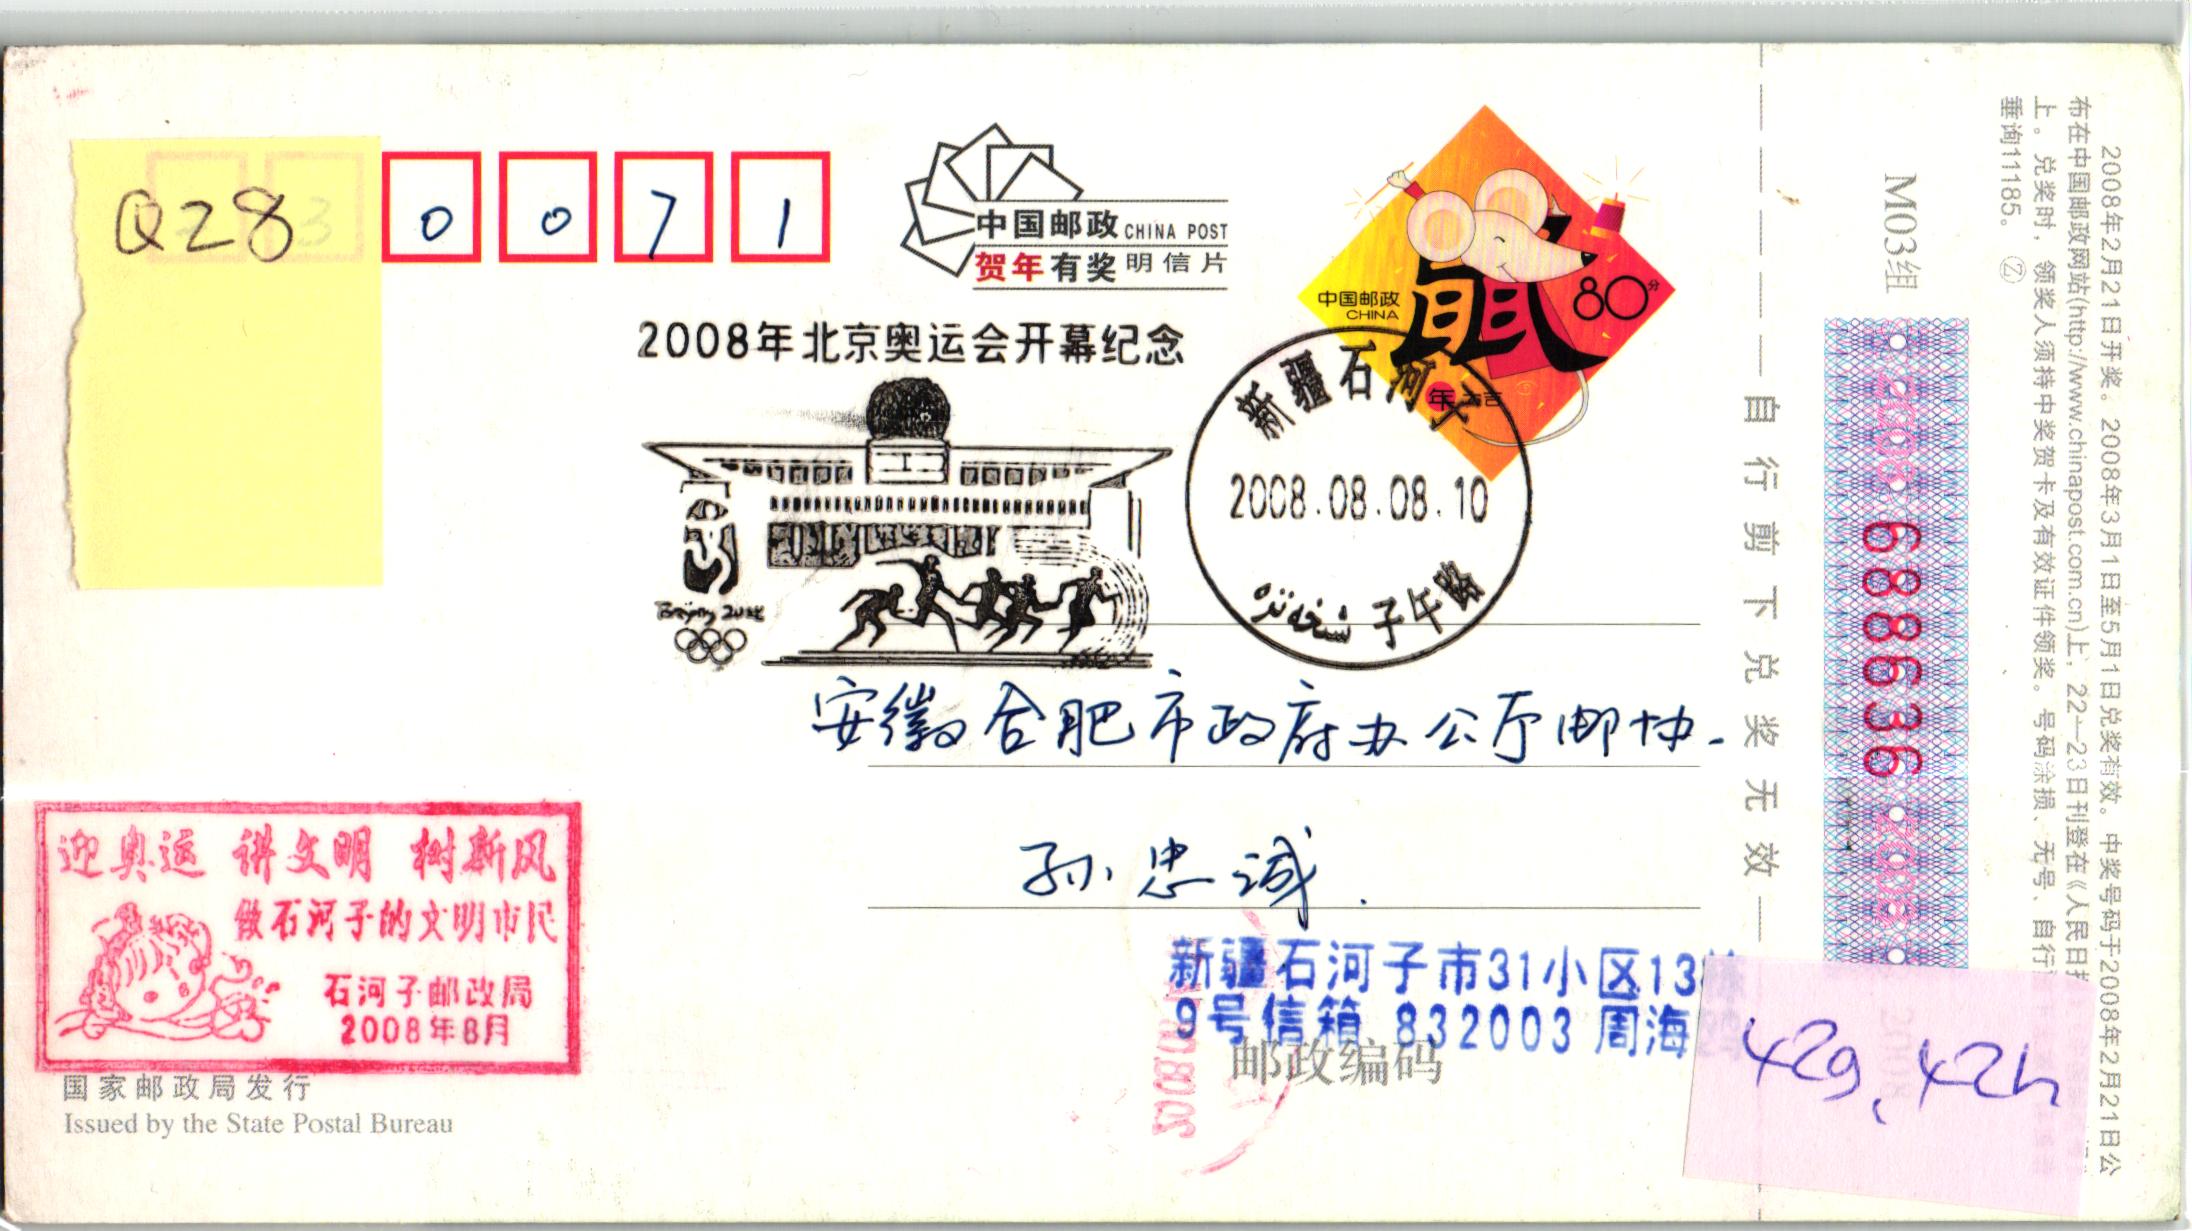 Q28
0 0 7 1
中国邮政 CHINA POST
贺年有奖 明信片
中国邮政
CHINA
80分
鼠
年大吉
2008年北京奥运会开幕纪念
Beijing 2008
新疆石河子
2008.08.08.10
子午路
安徽合肥市政府办公厅邮协.
孙忠诚.
迎奥运 讲文明 树新风
做石河子的文明市民
石河子邮政局
2008年8月
新疆石河子市31小区13栋
9号信箱 832003 周海
邮政编码
国家邮政局发行
Issued by the State Postal Bureau
自行剪下兑奖无效
M03组
2008 6888636 2008
42g、42h
2008年2月21日开奖。2008年3月1日至5月1日兑奖有效。中奖号码于2008年2月21日公
布在中国邮政网站(http://www.chinapost.com.cn)上，22—23日刊登在《人民日报
上。兑奖时，领奖人须持中奖贺卡及有效证件领奖。号码涂损、无号、自行
垂询11185。 Ⓩ